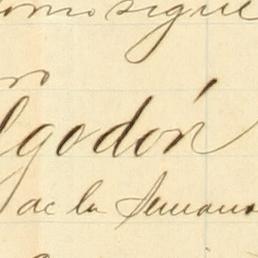 como sigue
ro
lgodón
de la Semana